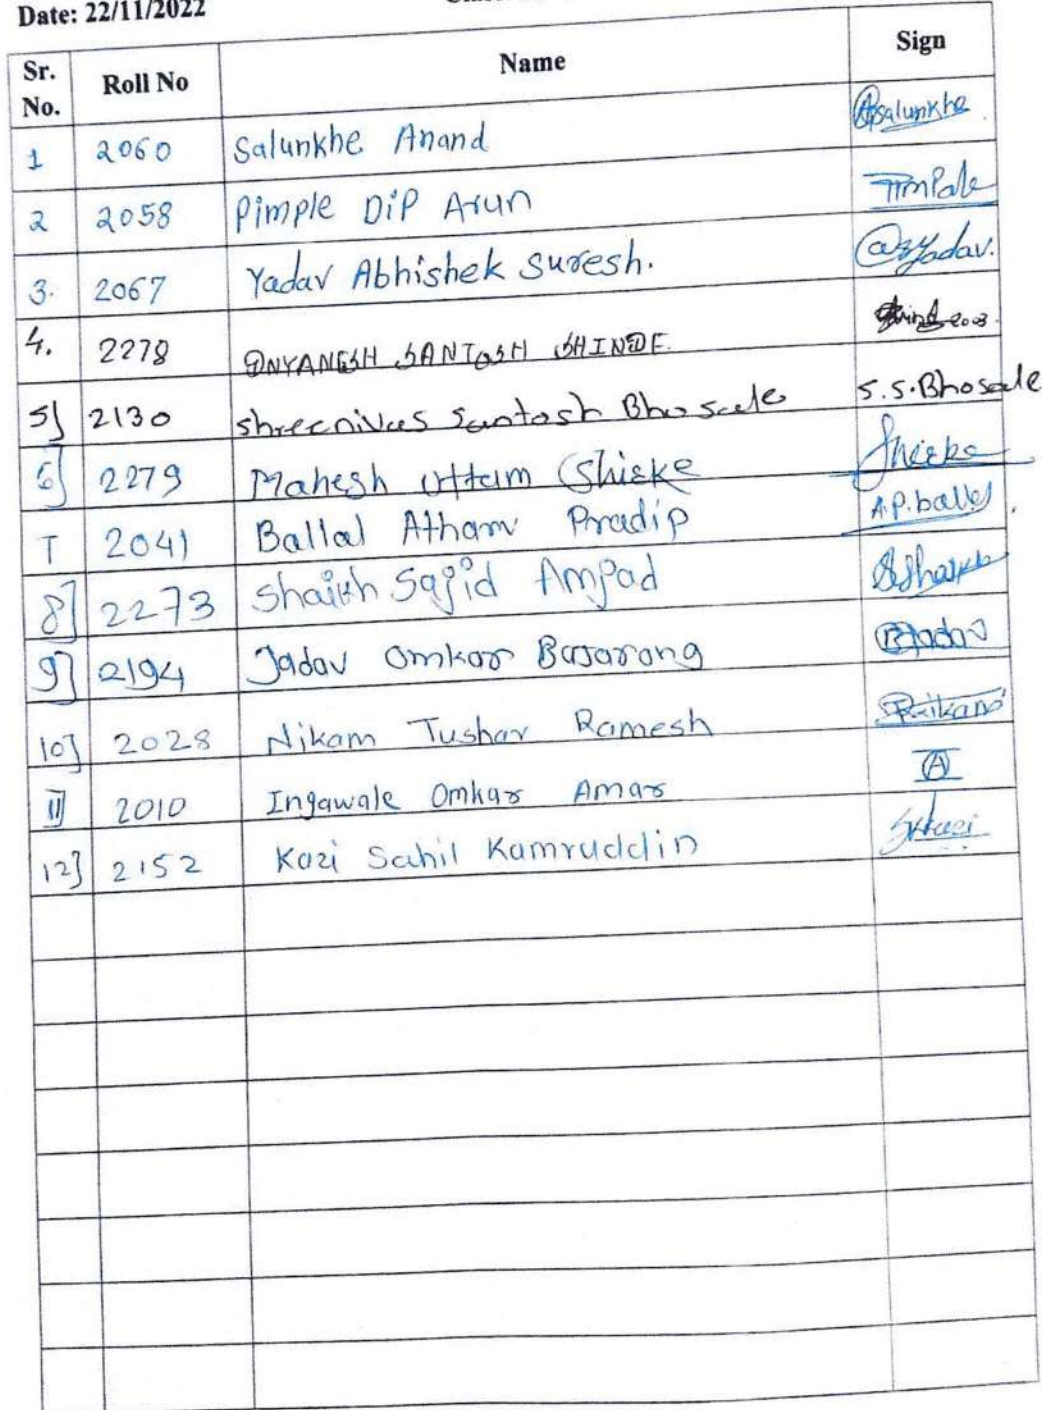 Date: 22/11/2022
Sr. No. Roll No Name Sign
1 2060 Salunkhe Anand Apsalunkhe
2 2058 Pimple DiP Arun
3. 2067 Yadav Abhishek Suresh. @szYadav.
4. 2278 DNYANESH SANTOSH SHINDE.
5] 2130 shreenivas Santosh Bhosale S.S.Bhosale
6] 2279 Mahesh uttam Shirke Shirke
7 2041 Ballal Atharv Pradip A.P.ballal
8] 2273 Shaikh Sajid Amjad SShaikh
9] 2194 Jadav Omkar Bajarang BJadav
10] 2028 Nikam Tushar Ramesh
11] 2010 Ingawale Omkar Amar A
12] 2152 Kazi Sahil Kamruddin